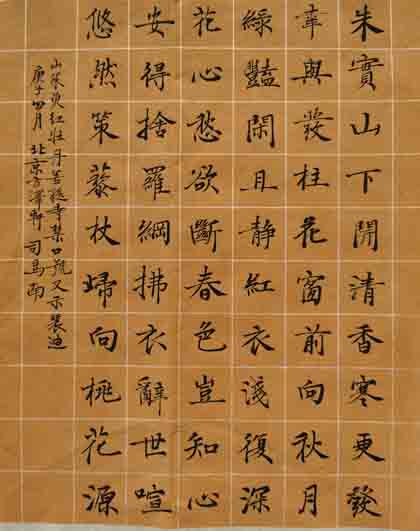 朱實山下開清香寒更發
幸與叢桂花窗前向秋月
綠豔閑且靜紅衣淺復深
花心愁欲斷春色豈知心
安得捨羅網拂衣辭世喧
悠然策藜杖歸向桃花源
山茱萸紅牡丹菩提寺禁口號又示裴迪
庚子四月北京方澤軒司馬